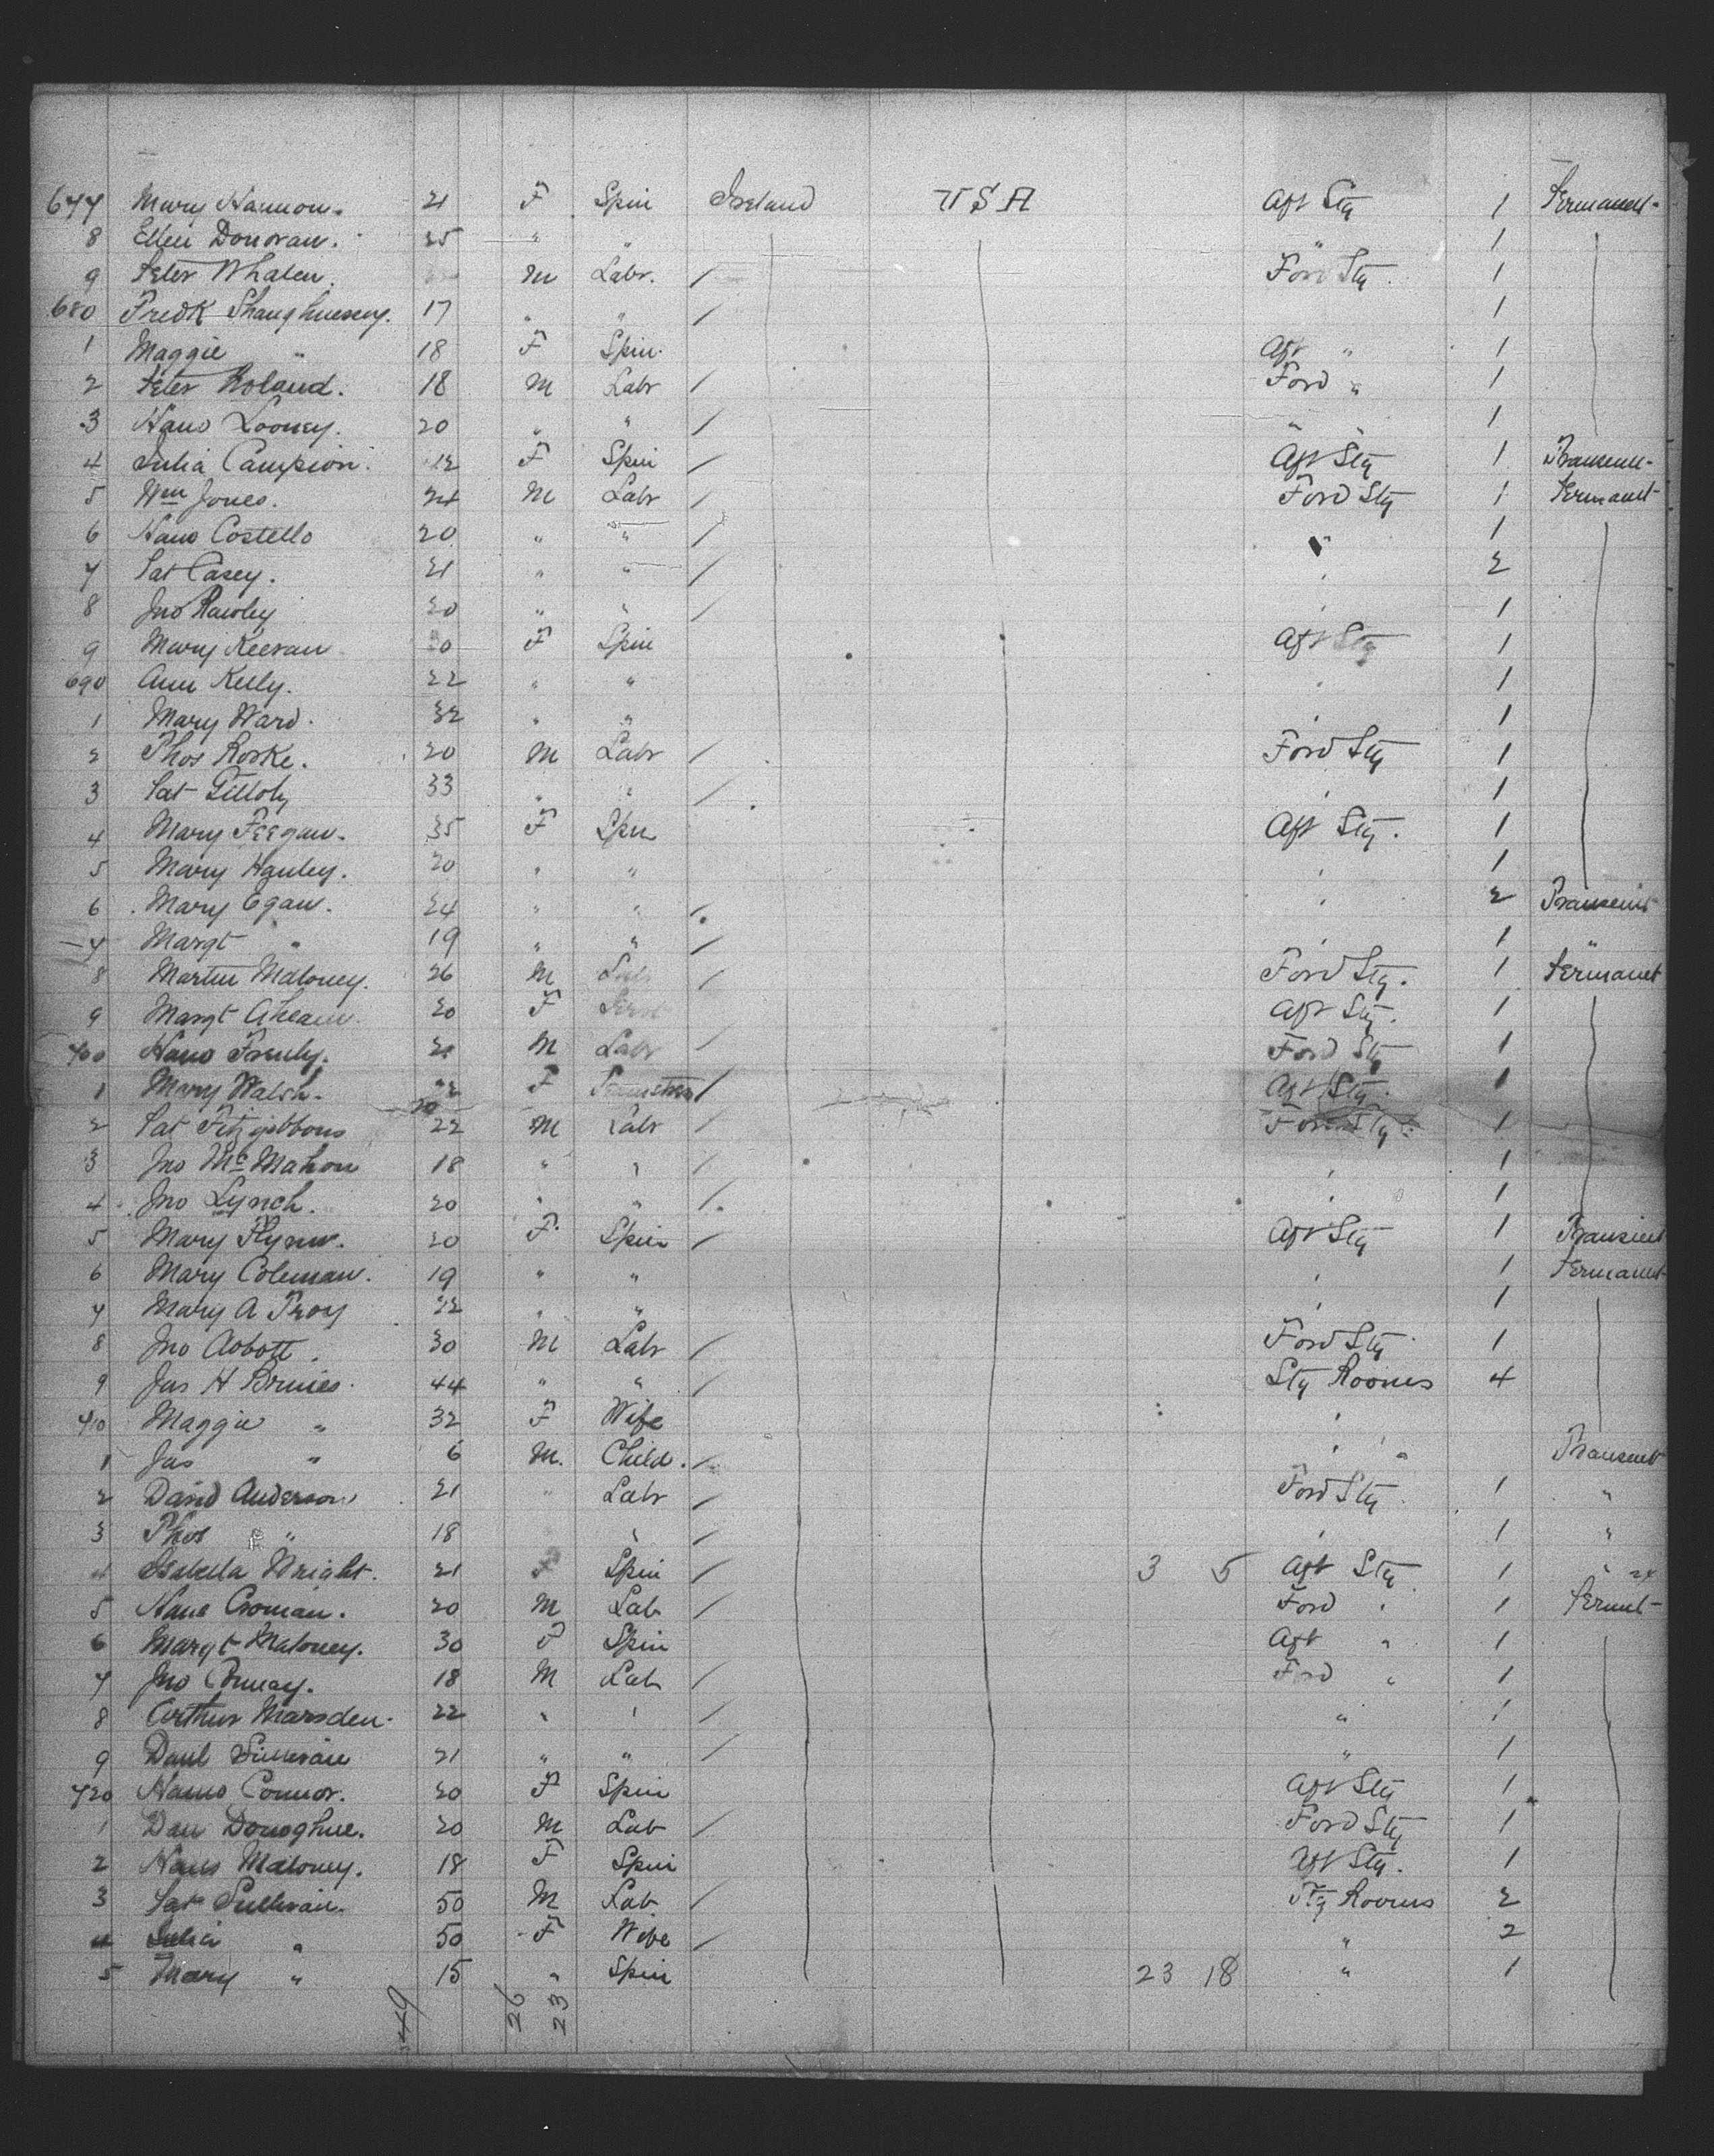 677 Mary Hannon. 21 F Spin Ireland U S A Aft Stg 1 Permanent.
8 Ellen Donovan. 25 " " " 1
9 Peter Whalen. M Labr. / Ford Stg. 1
680 Fredk Shaughnessy. 17 " " / 1
1 Maggie " 18 F Spin. Aft " 1
2 Peter Boland. 18 M Labr / Ford " 1
3 Hano Looney. 20 " " / " " 1
4 Julia Campion. 12 F Spin / Aft Stg 1 Transient
5 Wm Jones. 24 M Labr / Ford Stg 1 Permanet
6 Hano Costello 20 " " / " 1
7 Pat Casey. 21 " " / " 2
8 Jno Rawley 20 " " / " 1
9 Mary Keevan F Spin Aft Stg 1
690 Ann Kelly. 22 " " " 1
1 Mary Ward. 32 " " " 1
2 Thos Rorke. 20 M Labr / Ford Stg 1
3 Pat Gilloly 33 " " / " 1
4 Mary Feegan. 35 F Spin Aft Stg. 1
5 Mary Hanley. 20 " " " 1
6 Mary Egan. 24 " " / " 2 Transient
7 Margt " 19 " " / " 1 "
8 Martin Maloney. 26 M Labr / Ford Stg. 1 Permanet
9 Margt Ahearn. 20 F Aft Stg. 1
700 Hano 21 M Labr / Ford Stg 1
1 Mary Walsh. 22 F / Aft Stg. 1
2 Pat Fitzgibbons 22 M Labr / Ford Stg. 1
3 Jno McMahon 18 " " / " 1
4 Jno Lynch. 20 " " / " 1
5 Mary Flynn. 20 F. Spin / Aft Stg 1 Transient
6 Mary Coleman. 19 " " " 1 Permanet
7 Mary A Troy 22 " " " 1
8 Jno Abbott. 30 M Labr / Ford Stg 1
9 Jas H 44 " " / Stg Rooms 4
710 Maggie " 32 F Wife "
1 Jas " 6 M. Child. / " " Transient
2 David Anderson 21 " Labr / Ford Stg. 1 "
3 Thos " 18 " / " 1 "
4 Isabella Wright. 21 F Spin / 3 5 Aft Stg. 1 "
5 Hans Croman. 20 M Lab / Ford " 1 Permnt
6 Margt Maloney. 30 F Spin Aft " 1
7 Jno Conway. 18 M Lab / Ford " 1
8 Arthur Marsden. 22 " " / " 1
9 Danl Sullivan 21 " " / " 1
720 Connor. 20 F Spin Aft Stg 1
1 Dan Donoghue. 20 M Lab / Ford Stg 1
2 Maloney. 18 F Spin Aft Stg. 1
3 Pat Sullivan. 50 M Lab / Stg Rooms 2
4 Julia " 50 F Wife / " 2
5 Mary " 15 " Spin 23 18 " 1
49 26 23